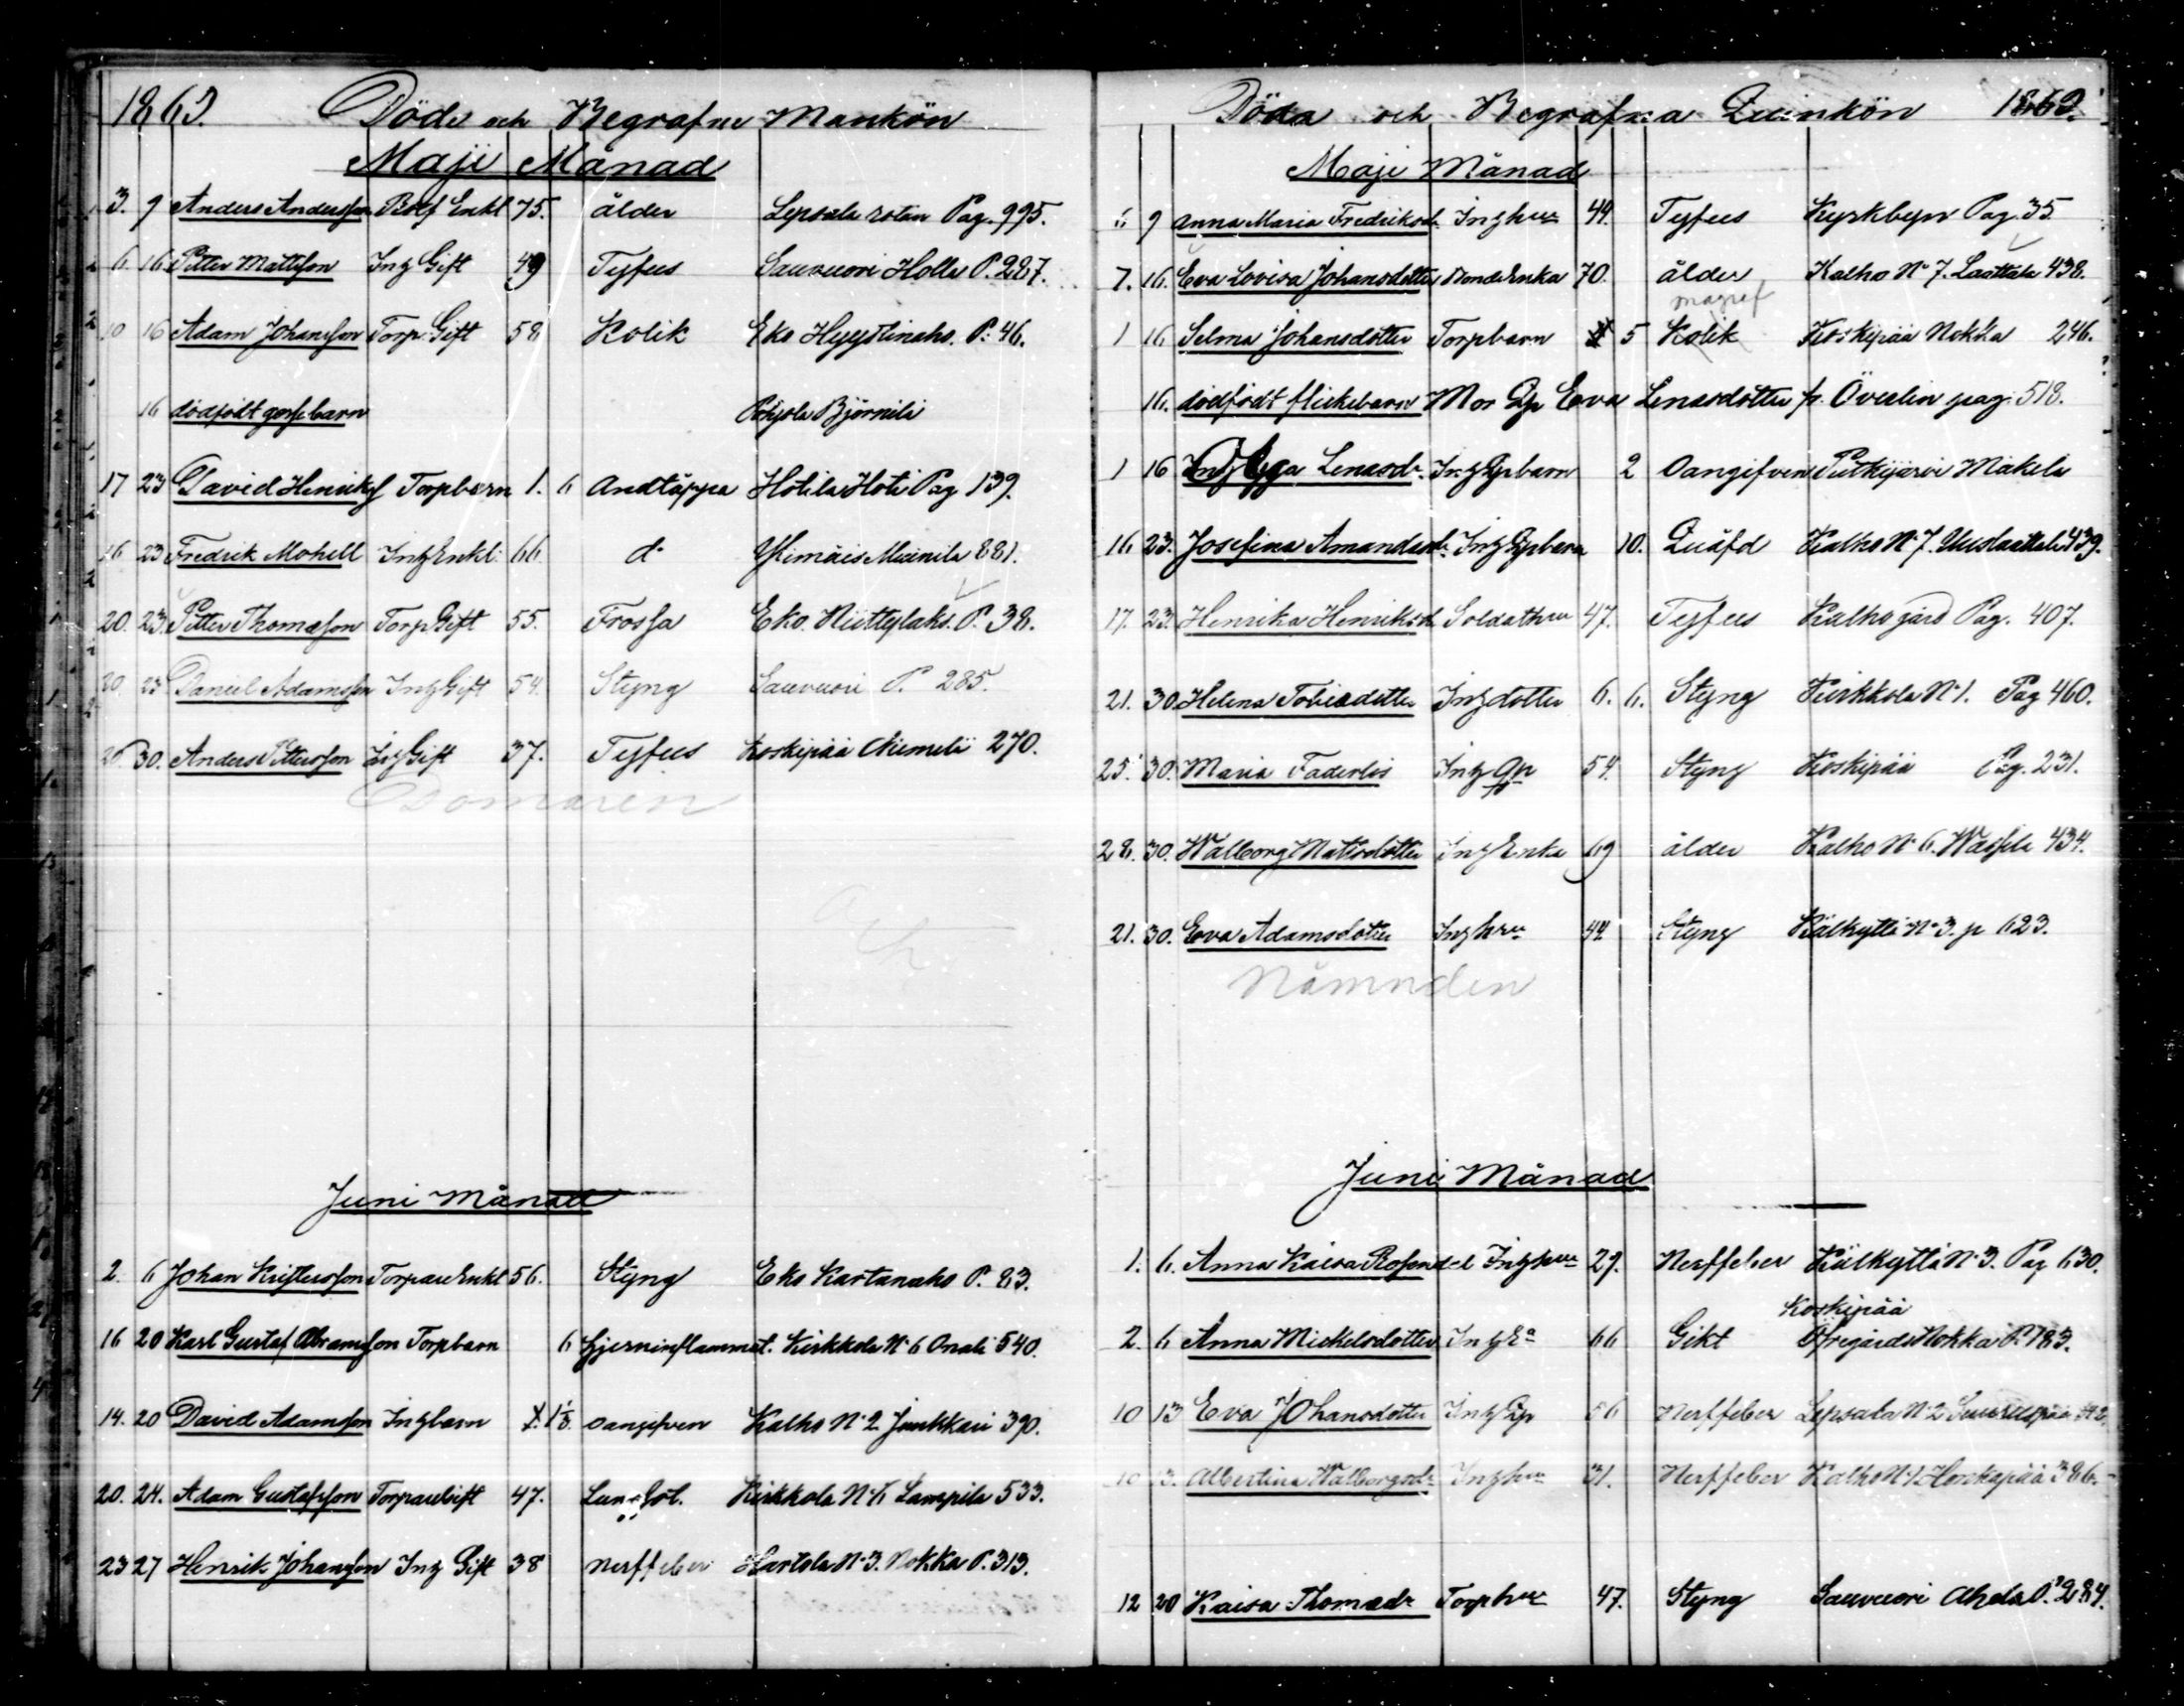 1863. Döde och Begrafne Mankön
Maji Månad
3. 9 Anders Andersson Enkl 75. ålder Lepsala roten Pag. 995.
6. 16. Petter Mattsson Inh Gift 49 Tyfus Sauvuori Holle P. 287.
10 16 Adam Johansson Torp. Gift 58 Kolik Eko P. 46.
16 dödfödt gossebarn Björnilä
17 23 David Henriksson Torpbarn 1. 6 Andtäppa Hötilä Hoti Pag 139.
16 23 Fredrik Mohell Inh Enkl. 66 do Meinilä 881.
20. 23. Petter Thomasson Torp Gift 55. Frossa Eko. P. 38.
20. 23 Daniel Adamsson Inh Gift 54. Styng Sauvuori P. 285.
26. 30. Anders Pettersson Inh Gift 37. Tyfus Koskipää Niemelä 270.
Domaren
och
Juni Månad
2. 6 Johan Torpare Enkl 56. Styng Eko Kartanaho P. 83.
16 20 Karl Gustaf Abramsson Torpbarn 6 hjerninflammat. Kirkkola No 6 Onali 540.
14. 20 David Adamsson Inhbarn oangifven Kalho No 2 Junkkari 390.
20. 24. Adam Gustafsson Torpare Gift 47. Lungsot. Kirkkola No Lampila 533.
23 27 Henrik Johansson Inh Gift 38 nerffeber Hartola No 3. Nokka P. 313.
Döda och Begrafna Quinkön 1863.
Maji Månad
6 9 Anna Maria Fredriksdr Inhhu 44. Tyfus Kyrkbyn Pag. 35.
7. 16. Eva Lovisa Johansdotter Bonde Enka 70. ålder Kalho No 7. Laattala 438.
1 16 Selma Johansdotter Torpbarn 5 Kolik Koskipää Nokka 246.
16. dödfödt flickebarn Mor Qp Eva Lenasdotter fr. Överlin pag. 518.
1 16 Olga Lenasdr. Inh Qpbarn 2 Oangifven Putkijärvi Mäkelä
16. 23. Josefina Amandasdr. Inh Qpbarn 10. Quäfd Kalho No 7. Uuslaattala 439.
17. 23. Henrika Henriksdr Soldathu 47. Tyfus Kalho gård Pag. 407.
21. 30. Helena Tobiasdotter Inhdotter 6. 6. Styng Kirkkola No 1. Pag 460.
25. 30. Maria Faderlös Inh Qp 54. Styng Koskipää Pag. 231.
28. 30. Walborg Mattsdotter Inh Enka 69 ålder Kalho No 6. 434.
21. 30. Eva Adamsdotter Inhhu 44 Styng Kälkyttä No 3. p 623.
Nämnden
Juni Månad
1. 6. Anna Kaisa Rosendal Inhhu 29. Nerffeber Kälkyttä No 3. Pag 630.
Koskipää
2. 6 Anna Mickelsdotter Inh Ea 66 Gikt Öfregårds Nokka P. 183.
10 13 Eva Johansdotter Inh Qp 56 Nerffeber Lepsala No 2
10 13. Albertina Walborgsdr Inhhu 31. Nerffeber Kalho No 1. Honkapää 386.
12 20 Kaisa Thomasdr Torphu 47. Styng Sauvuori Ahola P. 284.